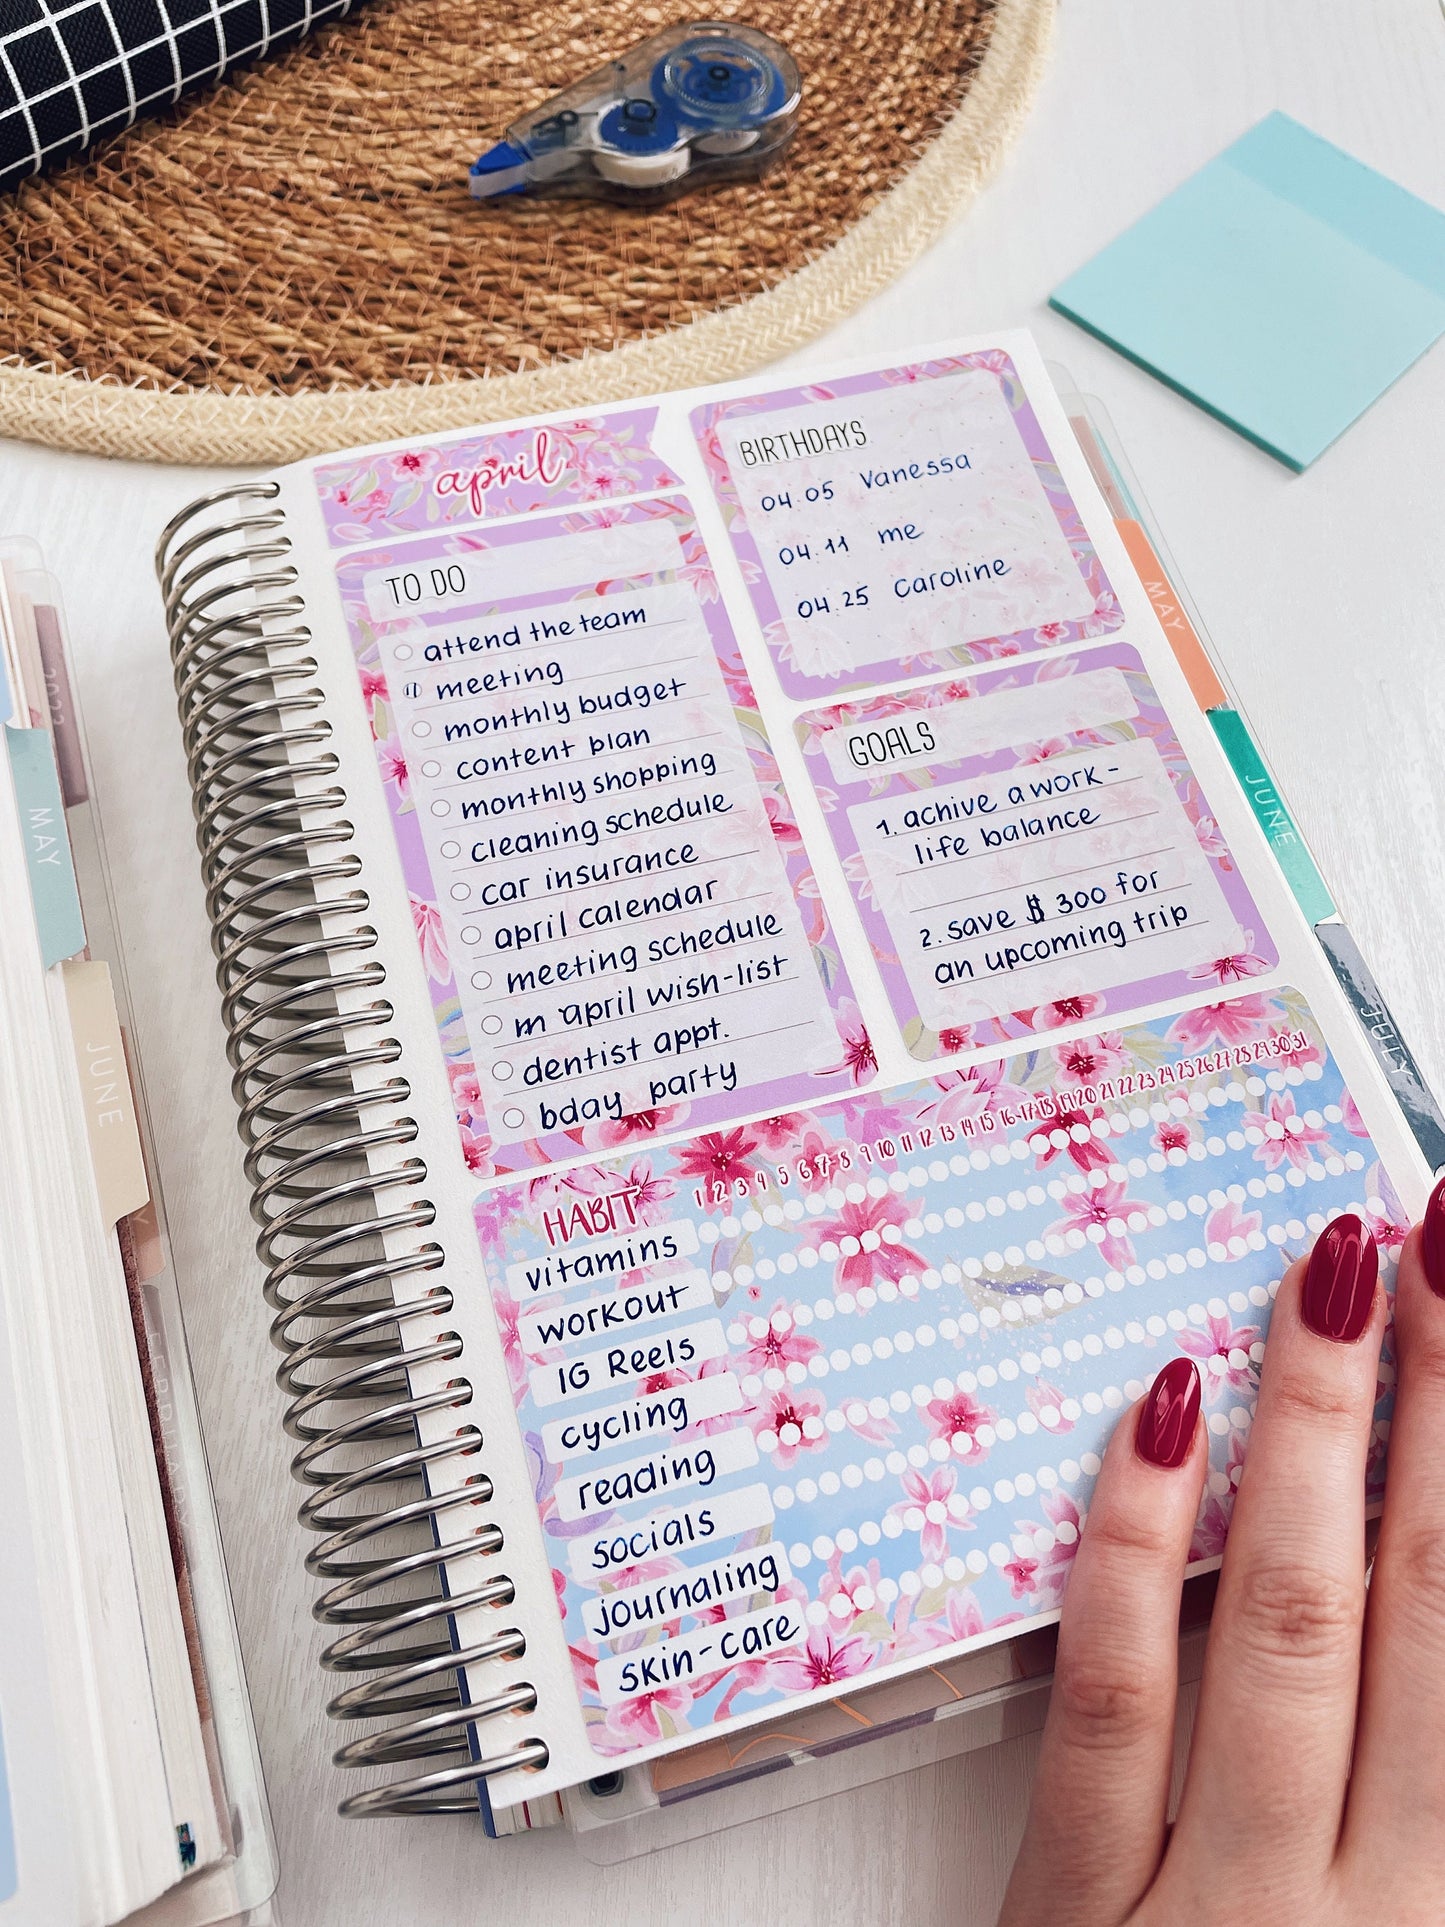 april
TO DO
attend the team
meeting
monthly budget
content plan
monthly shopping
cleaning schedule
car insurance
april calendar
meeting schedule
m april wish-list
dentist appt.
bday party
BIRTHDAYS
04.05 Vanessa
04.11 me
04.25 Caroline
GOALS
1. achive a work-
life balance
2. save $ 300 for
an upcoming trip
HABIT
1 2 3 4 5 6 7 8 9 10 11 12 13 14 15 16 17 18 19 20 21 22 23 24 25 26 27 28 29 30 31
vitamins
workout
IG Reels
cycling
reading
socials
journaling
skin-care
MAY
JUNE
JULY
2022
MAY
JUNE
FEBRUARY